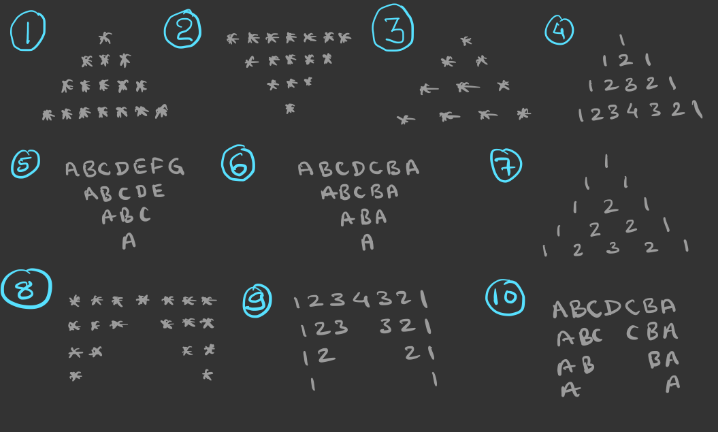 1
*
* * *
* * * * *
* * * * * * *
2
* * * * * * *
* * * * *
* * *
*
3
*
* *
* * *
* * * *
4
1
1 2 1
1 2 3 2 1
1 2 3 4 3 2 1
5
A B C D E F G
A B C D E
A B C
A
6
A B C D C B A
A B C B A
A B A
A
7
1
1 1
1 2 1
1 2 2 1
1 2 3 2 1
8
* * * * * * *
* * * * * *
* * * *
* *
9
1 2 3 4 3 2 1
1 2 3 3 2 1
1 2 2 1
1 1
10
A B C D C B A
A B C C B A
A B B A
A A